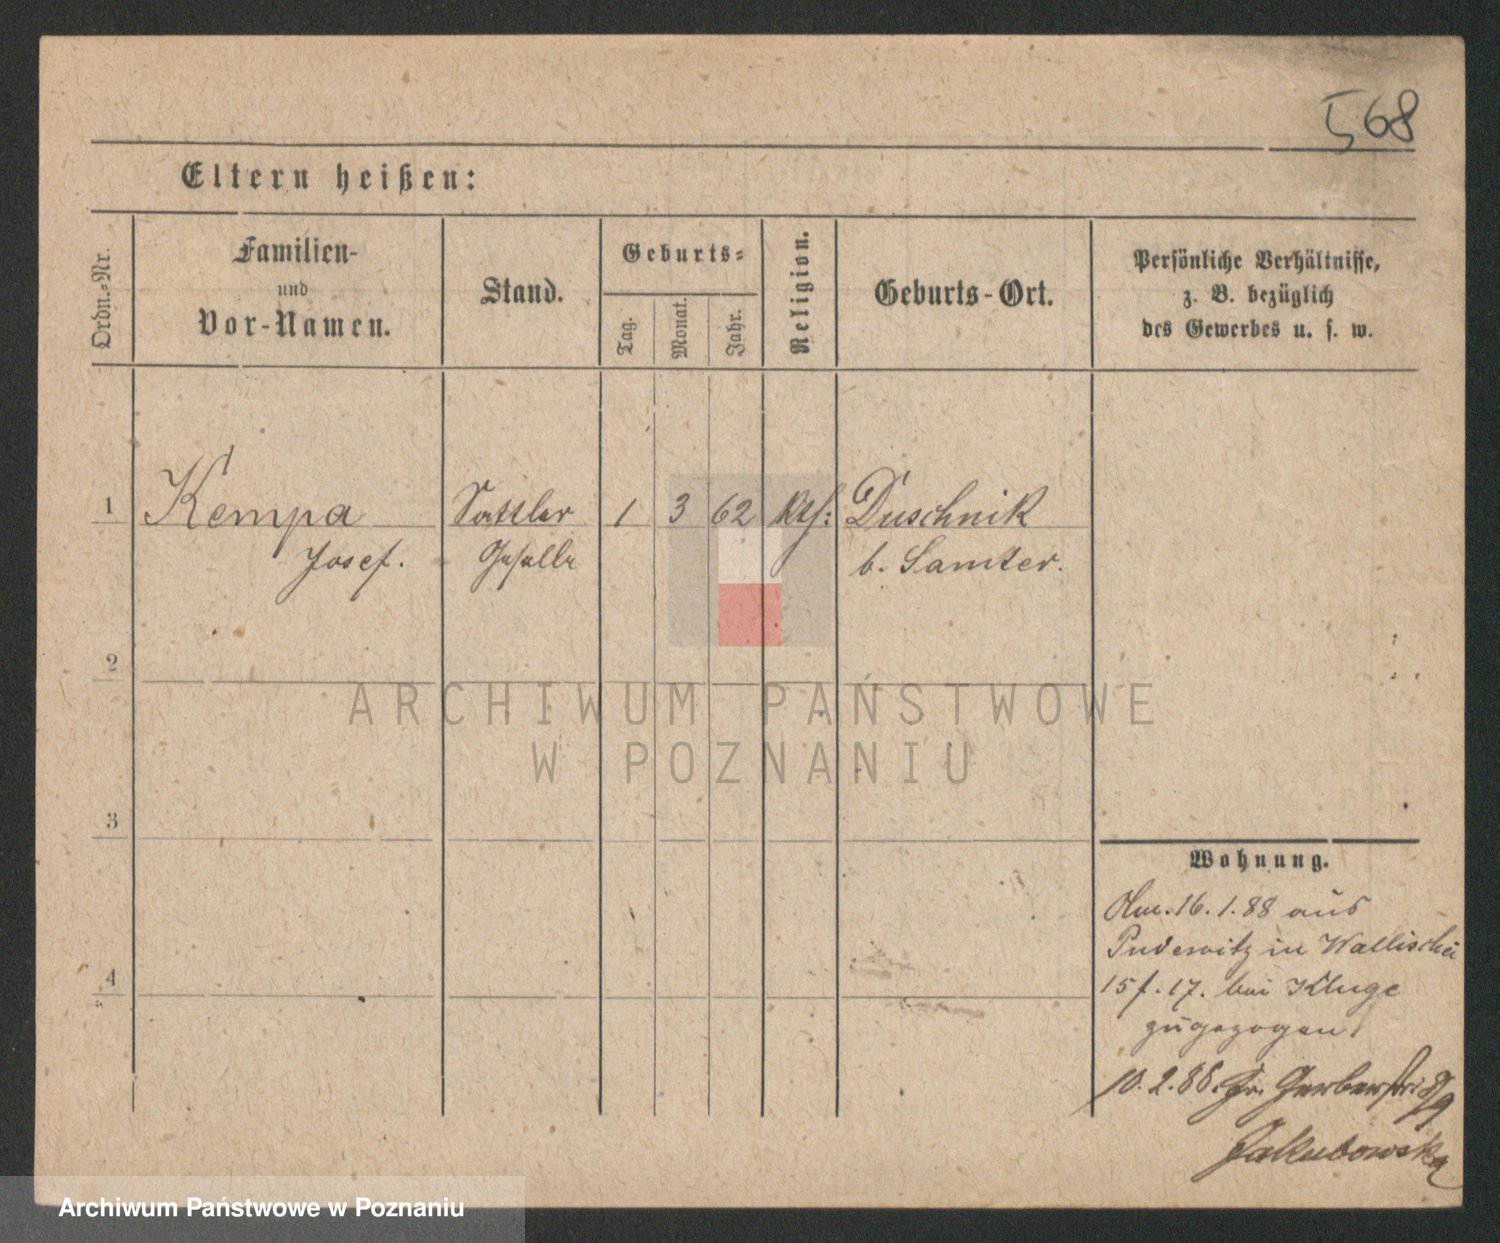 568
Eltern heißen:
Ordn.-Nr.
Familien-
und
Vor-Namen.
Stand.
Geburts-
Tag.
Monat.
Jahr.
Religion.
Geburts-Ort.
Persönliche Verhältnisse,
z. B. bezüglich
des Gewerbes u. s. w.
1 Kempa Sattler 1 3 62 Kth: Duschnik
Josef. Geselle b. Samter.
2
3
4
ARCHIWUM PAŃSTWOWE
W POZNANIU
Wohnung.
16.1.88 aus
Pudewitz in Wallischei
15 f. 17. bei Kluge
zugezogen
10.2.88. Gr. Gerberstr. 8/9
Jakubowska
Archiwum Państwowe w Poznaniu